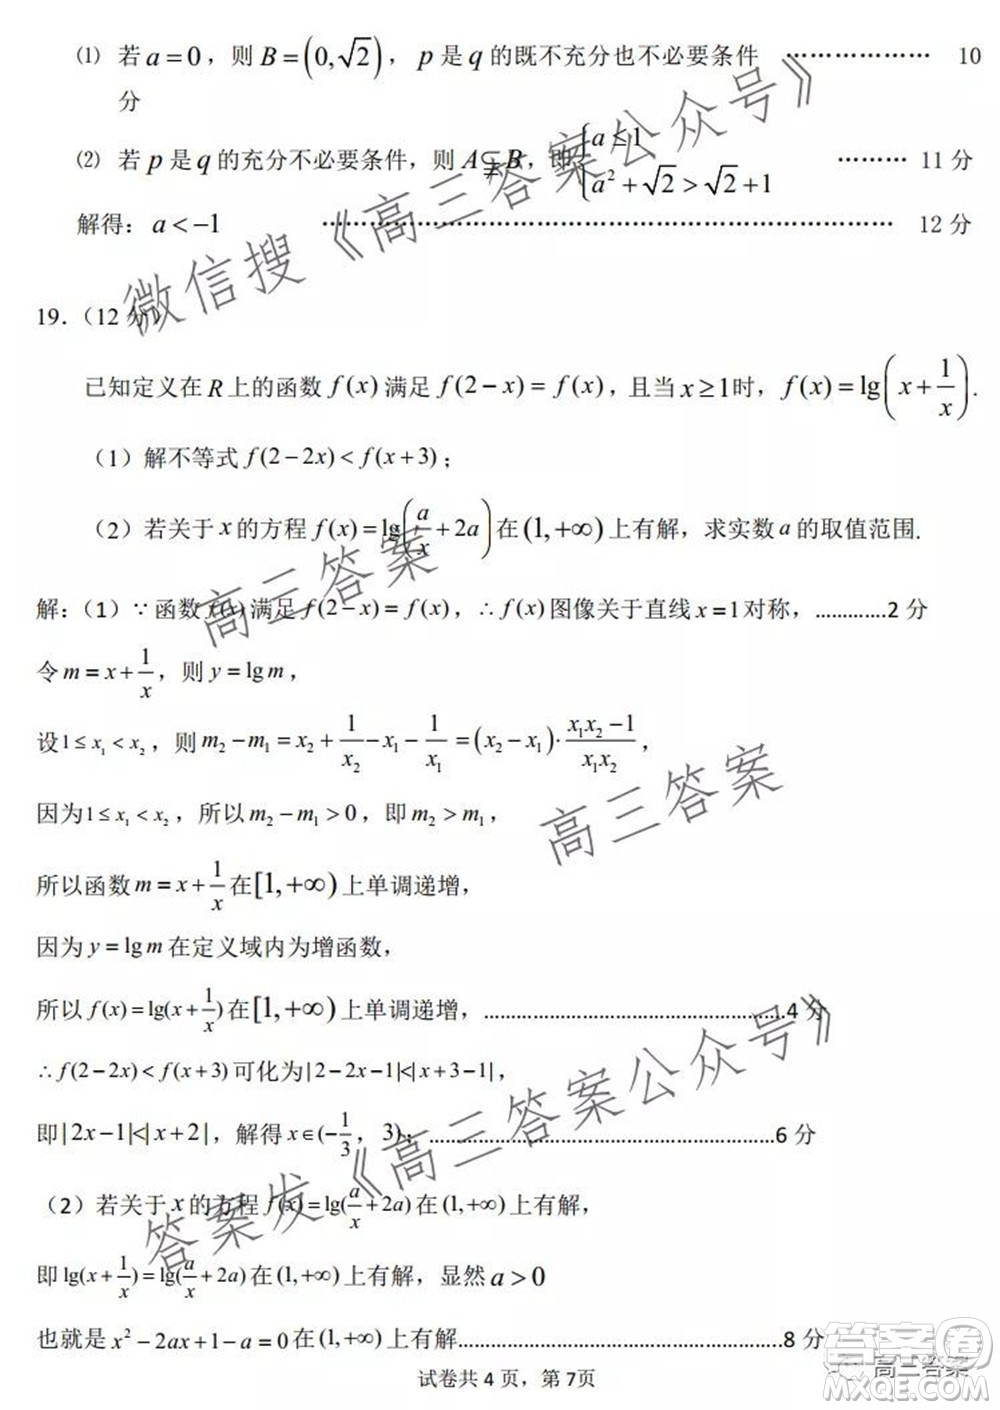 ⑴ 若 a = 0，则 B = (0, √2)，p 是 q 的既不充分也不必要条件 ………………… 10
分
⑵ 若 p 是 q 的充分不必要条件，则 A⫋B，即 {a ≤ 1
a² + √2 > √2 + 1 ……… 11 分
解得：a < −1 ……………………………………………………………… 12 分
微信搜《高三答案公众号》
19.（12 分）
已知定义在 R 上的函数 f(x) 满足 f(2−x) = f(x)，且当 x ≥ 1时，f(x) = lg(x + 1/x).
（1）解不等式 f(2−2x) < f(x+3)；
（2）若关于 x 的方程 f(x) = lg(a/x + 2a) 在 (1,+∞) 上有解，求实数 a 的取值范围.
高三答案
解：（1）∵ 函数 f(x) 满足 f(2−x) = f(x)，∴ f(x) 图像关于直线 x = 1 对称，............2 分
令 m = x + 1/x，则 y = lg m，
设 1 ≤ x₁ < x₂，则 m₂ − m₁ = x₂ + 1/x₂ − x₁ − 1/x₁ = (x₂ − x₁)·(x₁x₂ − 1)/(x₁x₂)，
因为1 ≤ x₁ < x₂，所以 m₂ − m₁ > 0，即 m₂ > m₁，
高三答案
所以函数 m = x + 1/x 在 [1,+∞) 上单调递增，
因为 y = lg m 在定义域内为增函数，
所以 f(x) = lg(x + 1/x) 在 [1,+∞) 上单调递增，..................................................4 分
∴ f(2−2x) < f(x+3) 可化为 |2−2x−1|<|x+3−1|，
即|2x−1|<|x+2|，解得 x∈(−1/3，3)；..........................................................6 分
答案发《高三答案公众号》
（2）若关于 x 的方程 f(x) = lg(a/x + 2a) 在 (1,+∞) 上有解，
即 lg(x + 1/x) = lg(a/x + 2a) 在 (1,+∞) 上有解，显然 a > 0
也就是 x² − 2ax + 1 − a = 0 在 (1,+∞) 上有解......................................................8 分
试卷共 4 页，第 7页
高三答案
答案圈
MXQE.COM